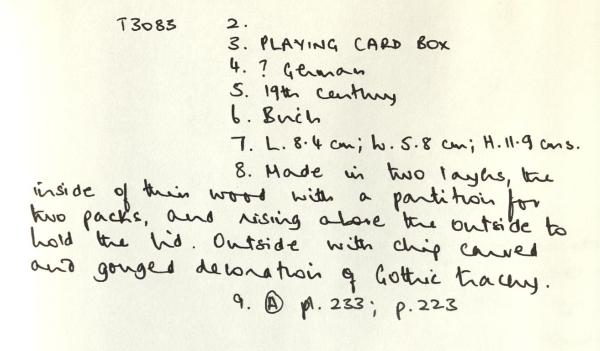 T3083 2.
3. PLAYING CARD BOX
4. ? German
5. 19th century
6. Birch
7. L. 8.4 cm; W. 5.8 cm; H. 11.9 cms.
8. Made in two layers, the
inside of thin wood with a partition for
two packs, and rising above the outside to
hold the lid. Outside with chip carved
and gouged decoration of Gothic tracery.
9. Ⓐ pl. 233; p. 223